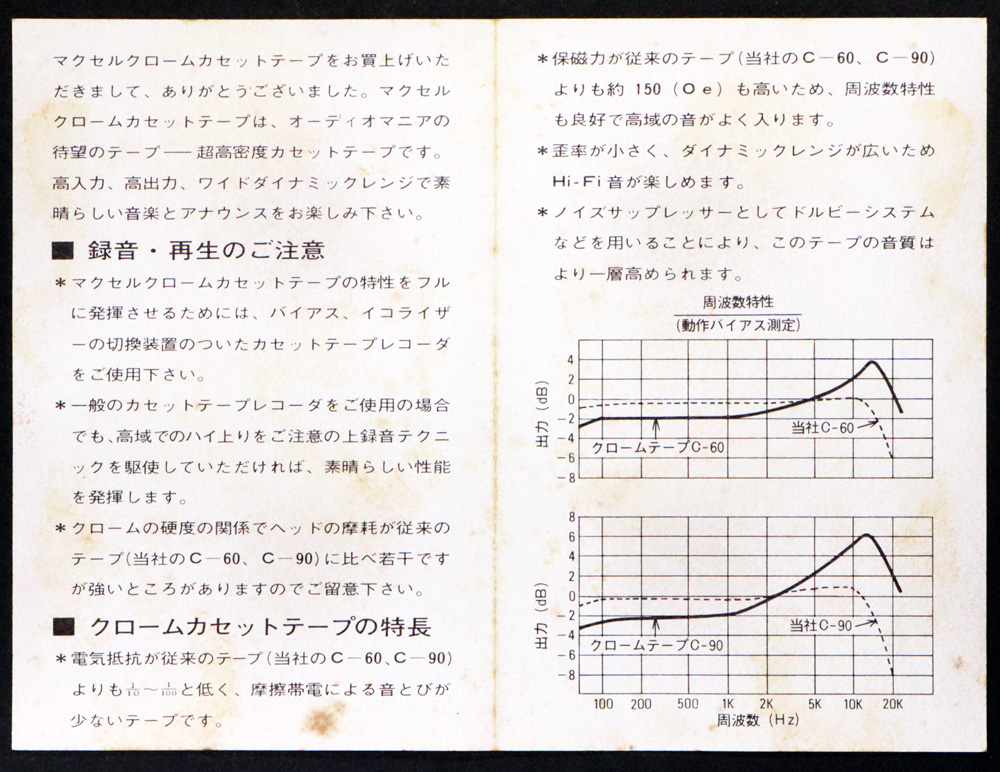 マクセルクロームカセットテープをお買上げいた
だきまして、ありがとうございました。マクセル
クロームカセットテープは、オーディオマニアの
待望のテープ――超高密度カセットテープです。
高入力、高出力、ワイドダイナミックレンジで素
晴らしい音楽とアナウンスをお楽しみ下さい。
■ 録音・再生のご注意
*マクセルクロームカセットテープの特性をフル
に発揮させるためには、バイアス、イコライザ
ーの切換装置のついたカセットテープレコーダ
をご使用下さい。
*一般のカセットテープレコーダをご使用の場合
でも、高域でのハイ上りをご注意の上録音テクニ
ックを駆使していただければ、素晴らしい性能
を発揮します。
*クロームの硬度の関係でヘッドの摩耗が従来の
テープ(当社のC－60、C－90)に比べ若干です
が強いところがありますのでご留意下さい。
■ クロームカセットテープの特長
*電気抵抗が従来のテープ(当社のC－60、C－90)
よりも1/10～1/100と低く、摩擦帯電による音とびが
少ないテープです。
*保磁力が従来のテープ(当社のC－60、C－90)
よりも約 150（Oe）も高いため、周波数特性
も良好で高域の音がよく入ります。
*歪率が小さく、ダイナミックレンジが広いため
Hi-Fi音が楽しめます。
*ノイズサップレッサーとしてドルビーシステム
などを用いることにより、このテープの音質は
より一層高められます。
周波数特性
(動作バイアス測定)
出力 (dB)
4
2
0
－2
－4
－6
－8
クロームテープC-60
当社C-60
出力 (dB)
8
6
4
2
0
－2
－4
－6
－8
クロームテープC-90
当社C-90
100 200 500 1K 2K 5K 10K 20K
周波数 (Hz)